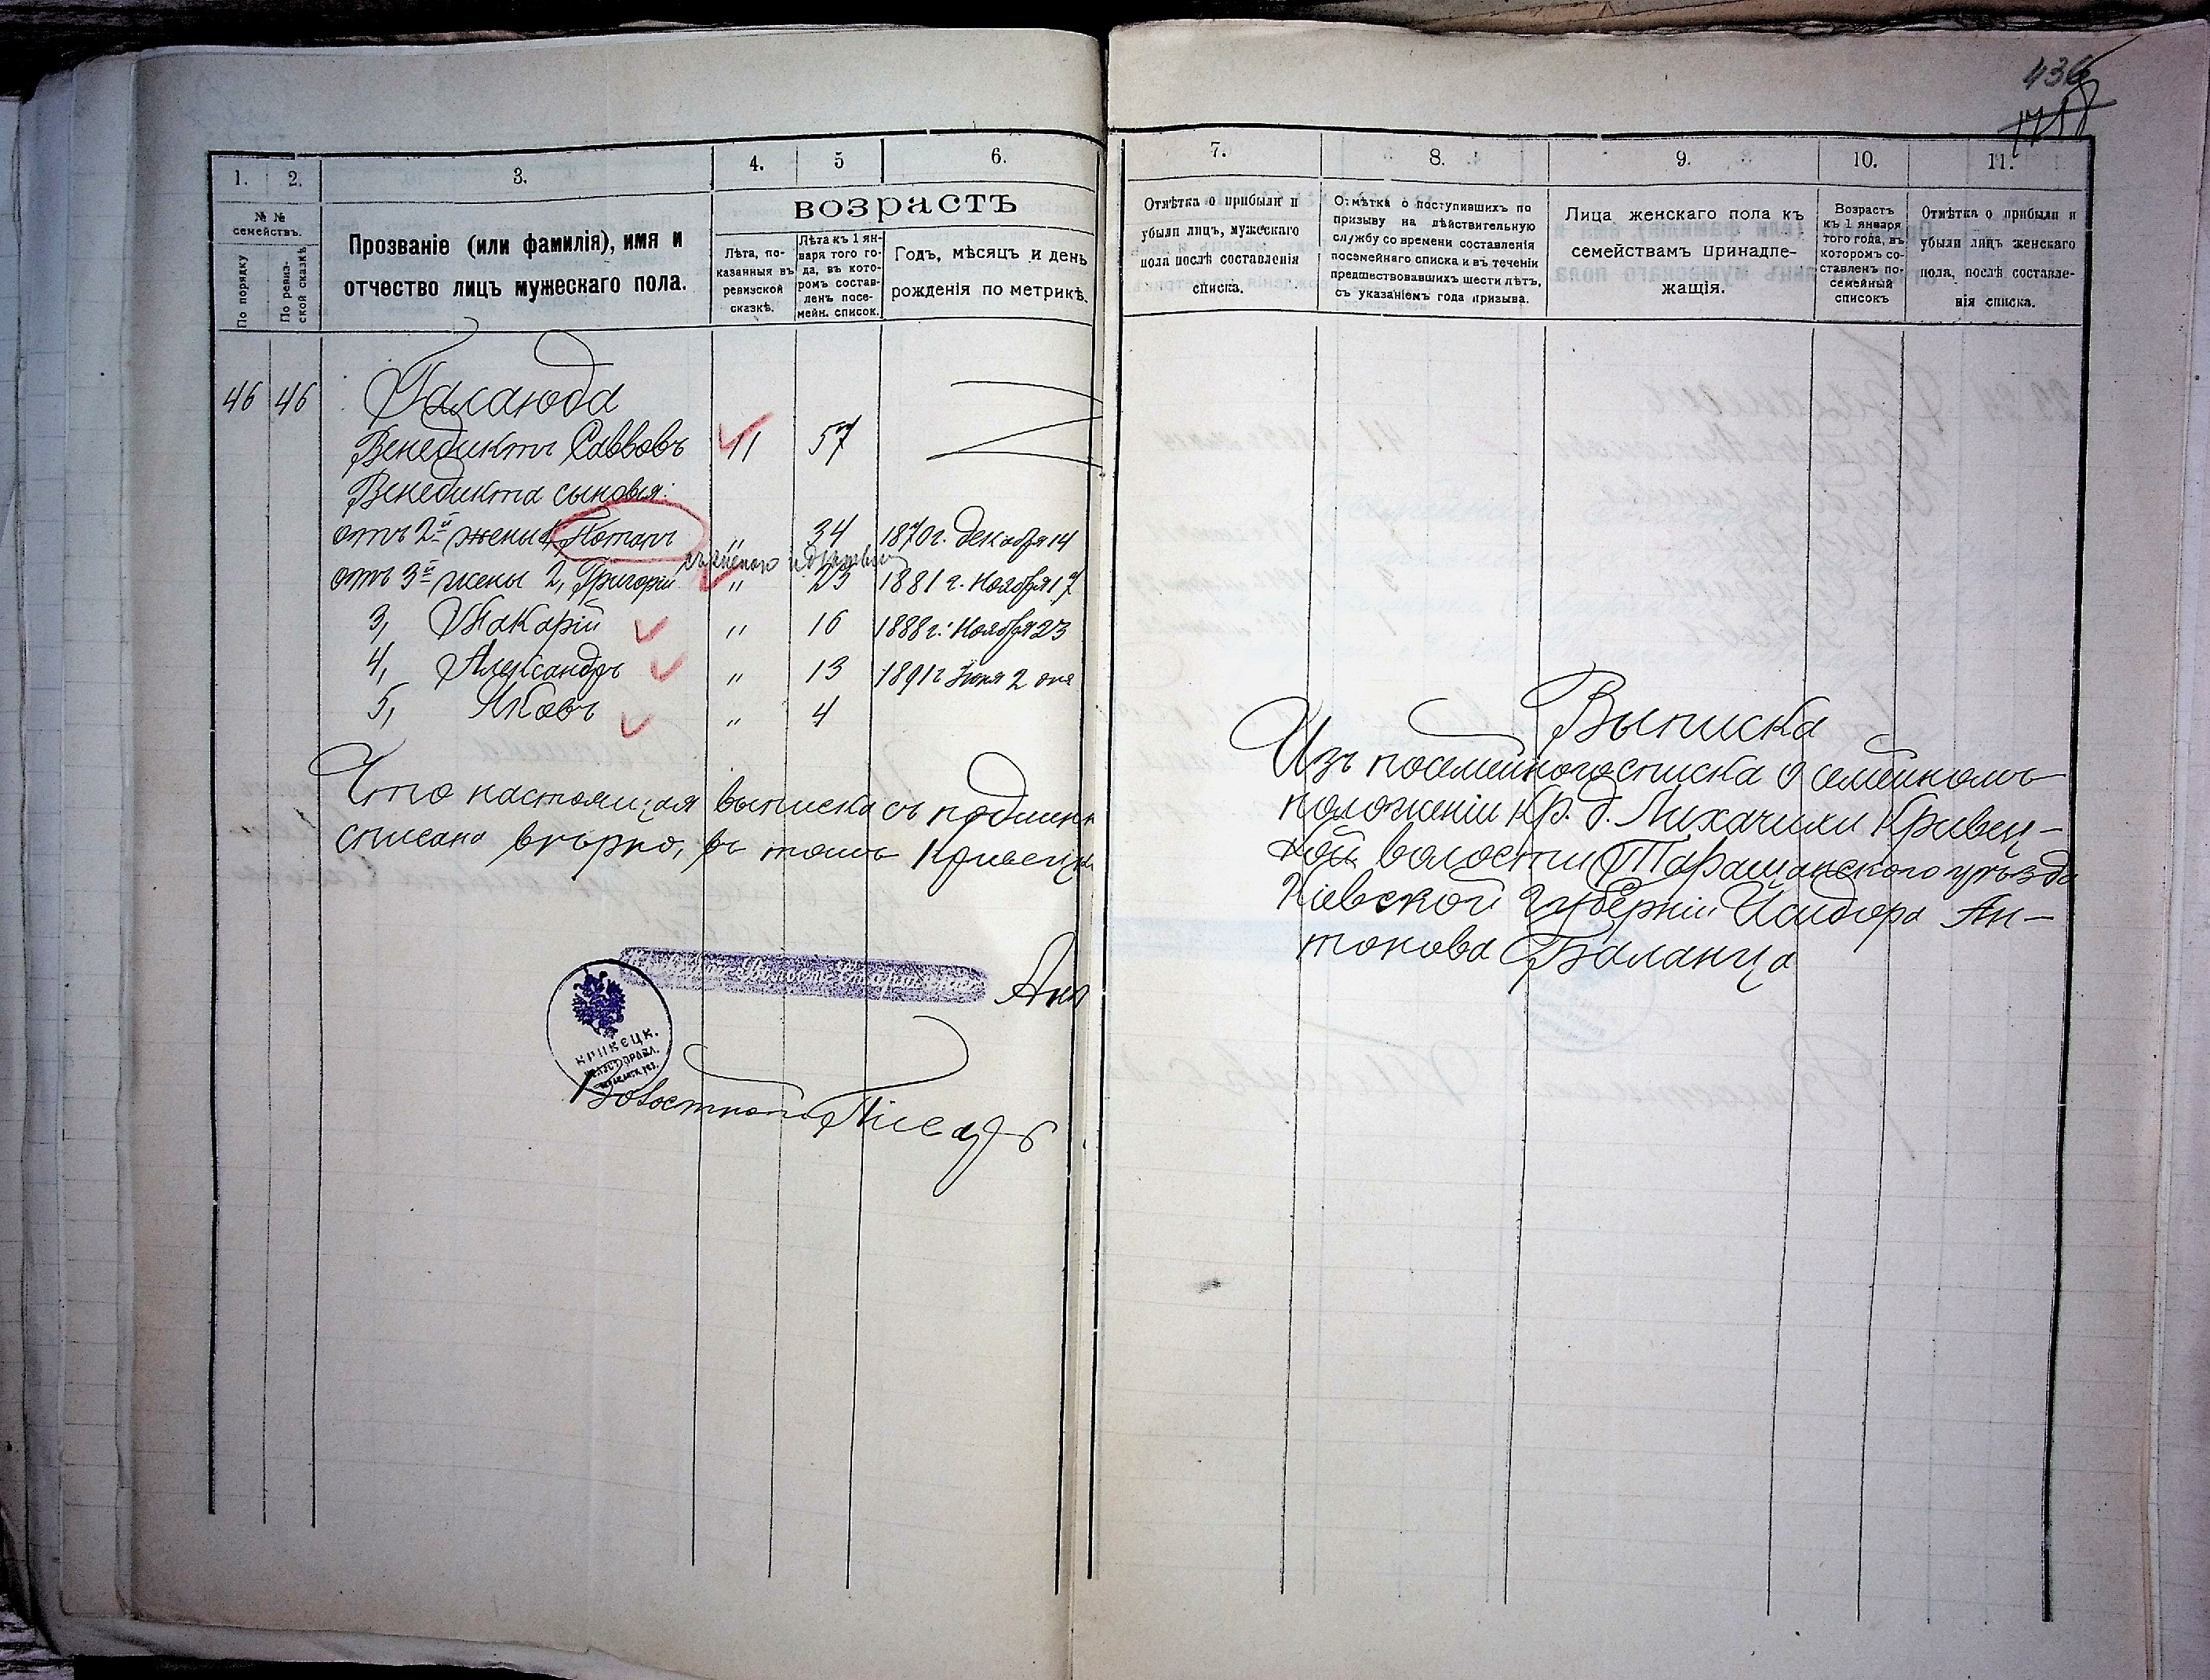 436
1. 2. 3. 4. 5 6.
№ №
семействъ.
По порядку
По ревиз-
ской сказкѣ
Прозваніе (или фамилія), имя и
отчество лицъ мужескаго пола.
возрастъ
Лѣта, по-
казанныя въ
ревизской
сказкѣ.
Лѣта къ 1 ян-
варя того го-
да, въ кото-
ромъ состав-
ленъ посе-
мейн. список.
Годъ, мѣсяцъ и день
рожденія по метрикѣ.
46 46 Галаюда
Венедиктъ Саввовъ 11 57
Венедикта сыновья:
отъ 2й жены 1, Потапъ " 34 1870 г. декабря 14
отъ 3й жены 2, Григорій " 23 1881 г. Ноября 17
3, Макарій " 16 1888 г. Ноября 23
4, Александръ " 13 1891 г. Іюня 2 дня
5, Яковъ " 4
Что настоящая выписка съ подлин
списана вѣрно, въ томъ Кривецк
КРИВЕЦК.
Волостной Писарь
7. 8. 9. 10. 11.
Отмѣтка о прибыли и
убыли лицъ, мужескаго
пола послѣ составленія
списка.
Отмѣтка о поступившихъ по
призыву на дѣйствительную
службу со времени составленія
посемейнаго списка и въ теченіи
предшествовавшихъ шести лѣтъ,
съ указаніемъ года призыва.
Лица женскаго пола къ
семействамъ принадле-
жащія.
Возрастъ
къ 1 января
того года, въ
которомъ со-
ставленъ по-
семейный
списокъ
Отмѣтка о прибыли и
убыли лицъ женскаго
пола, послѣ составле-
нія списка.
Выписка
Изъ посемейного списка о семейномъ
положеніи кр. д. Лихачихи Кривец-
кой волости Таращанского уѣзда
Кіевской губерніи Исидора Ан-
тонова Баланца